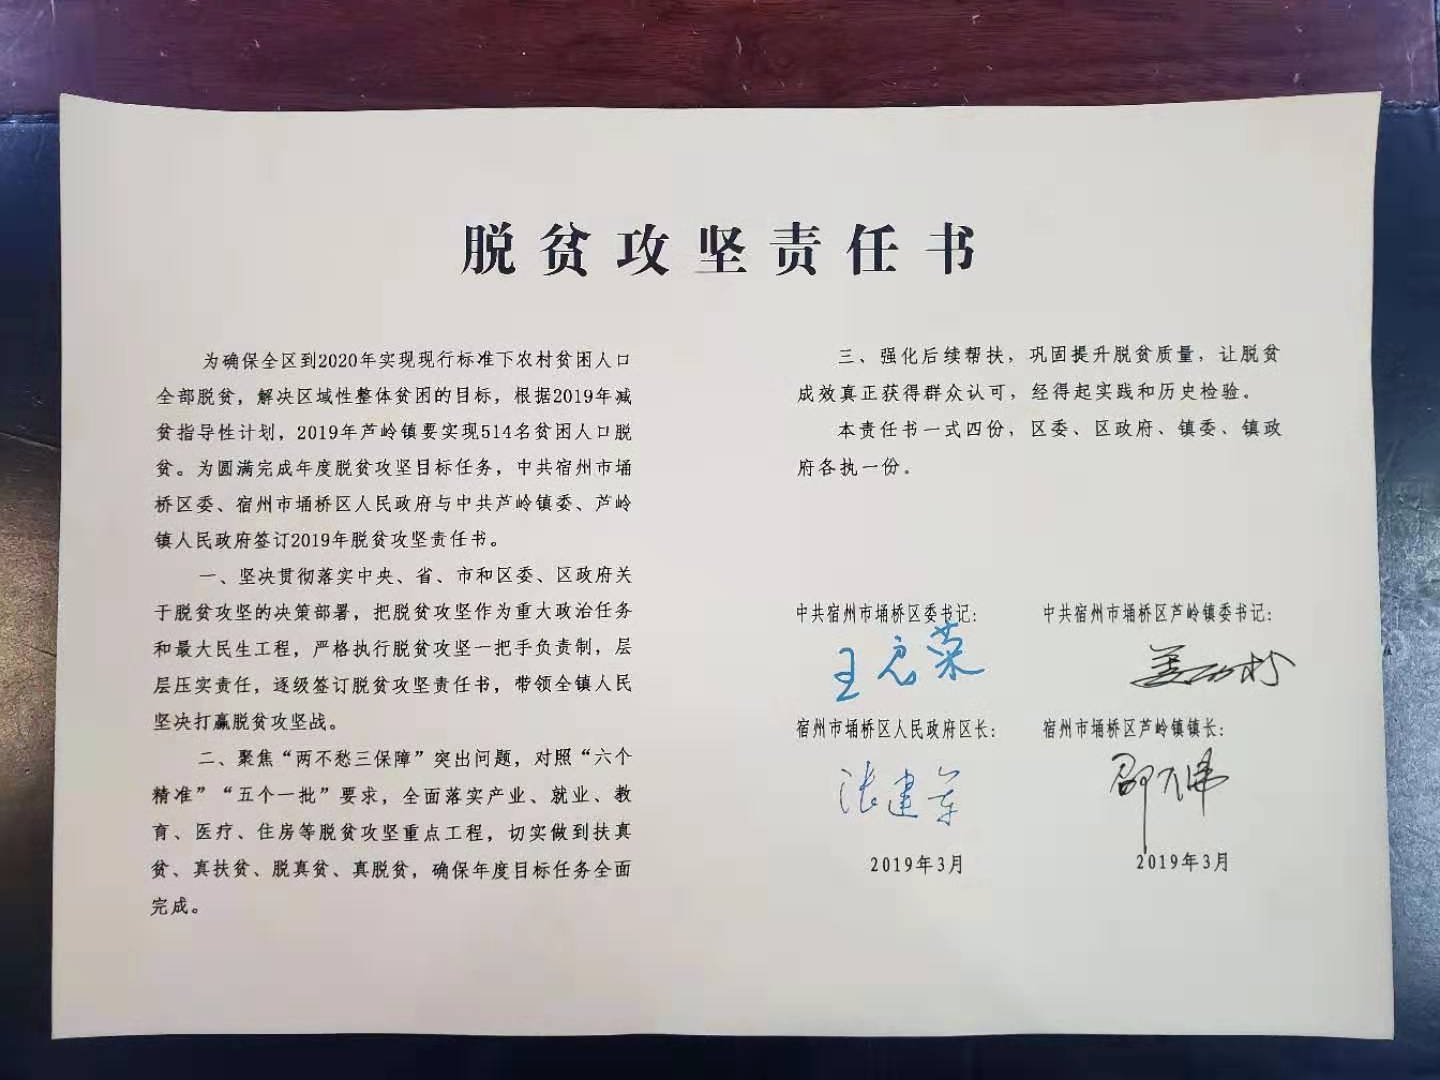 脱贫攻坚责任书
为确保全区到2020年实现现行标准下农村贫困人口
全部脱贫，解决区域性整体贫困的目标，根据2019年减
贫指导性计划，2019年芦岭镇要实现514名贫困人口脱
贫。为圆满完成年度脱贫攻坚目标任务，中共宿州市埇
桥区委、宿州市埇桥区人民政府与中共芦岭镇委、芦岭
镇人民政府签订2019年脱贫攻坚责任书。
一、坚决贯彻落实中央、省、市和区委、区政府关
于脱贫攻坚的决策部署，把脱贫攻坚作为重大政治任务
和最大民生工程，严格执行脱贫攻坚一把手负责制，层
层压实责任，逐级签订脱贫攻坚责任书，带领全镇人民
坚决打赢脱贫攻坚战。
二、聚焦“两不愁三保障”突出问题，对照“六个
精准”“五个一批”要求，全面落实产业、就业、教
育、医疗、住房等脱贫攻坚重点工程，切实做到扶真
贫、真扶贫、脱真贫、真脱贫，确保年度目标任务全面
完成。
三、强化后续帮扶，巩固提升脱贫质量，让脱贫
成效真正获得群众认可，经得起实践和历史检验。
本责任书一式四份，区委、区政府、镇委、镇政
府各执一份。
中共宿州市埇桥区委书记：
王启荣
宿州市埇桥区人民政府区长：
张建军
2019年3月
中共宿州市埇桥区芦岭镇委书记：
宿州市埇桥区芦岭镇镇长：
2019年3月